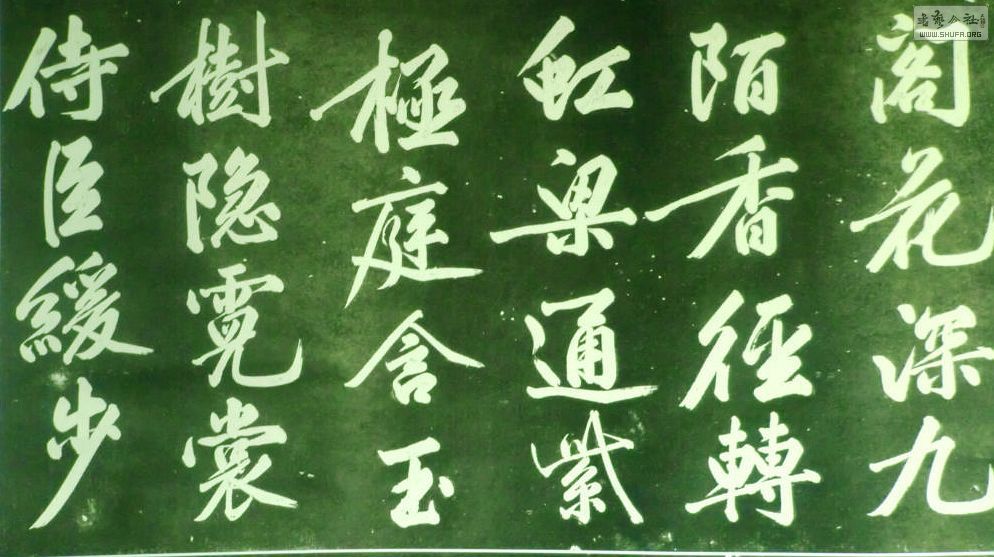 阁花深九
陌香径轉
虹梁通紫
極庭含玉
樹隐霓裳
侍臣緩步
WWW.SHUFA.ORG